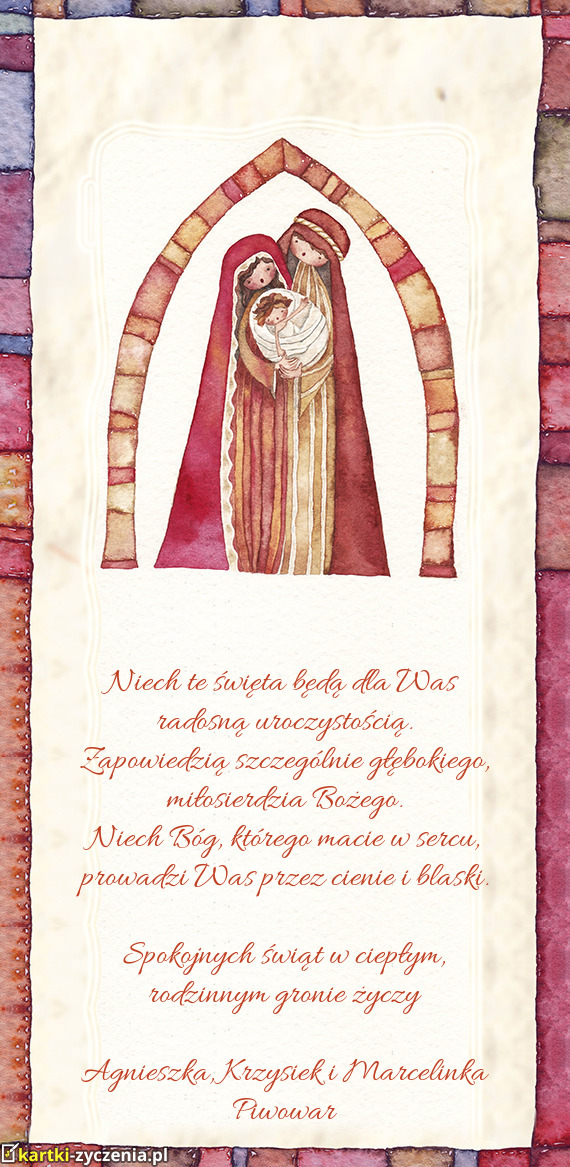 Niech te święta będą dla Was
radosną uroczystością.
Zapowiedzią szczególnie głębokiego,
miłosierdzia Bożego.
Niech Bóg, którego macie w sercu,
prowadzi Was przez cienie i blaski.
Spokojnych świąt w ciepłym,
rodzinnym gronie życzy
Agnieszka, Krzysiek i Marcelinka
Piwowar
kartki-zyczenia.pl